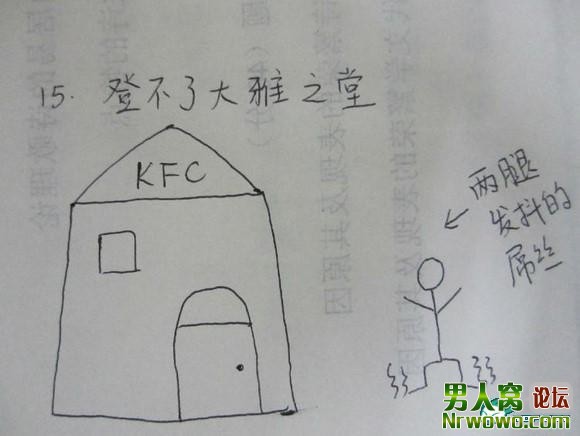 15. 登不了大雅之堂
KFC
两腿
发抖的
屌丝
男人窝 论坛
Nrwowo.com